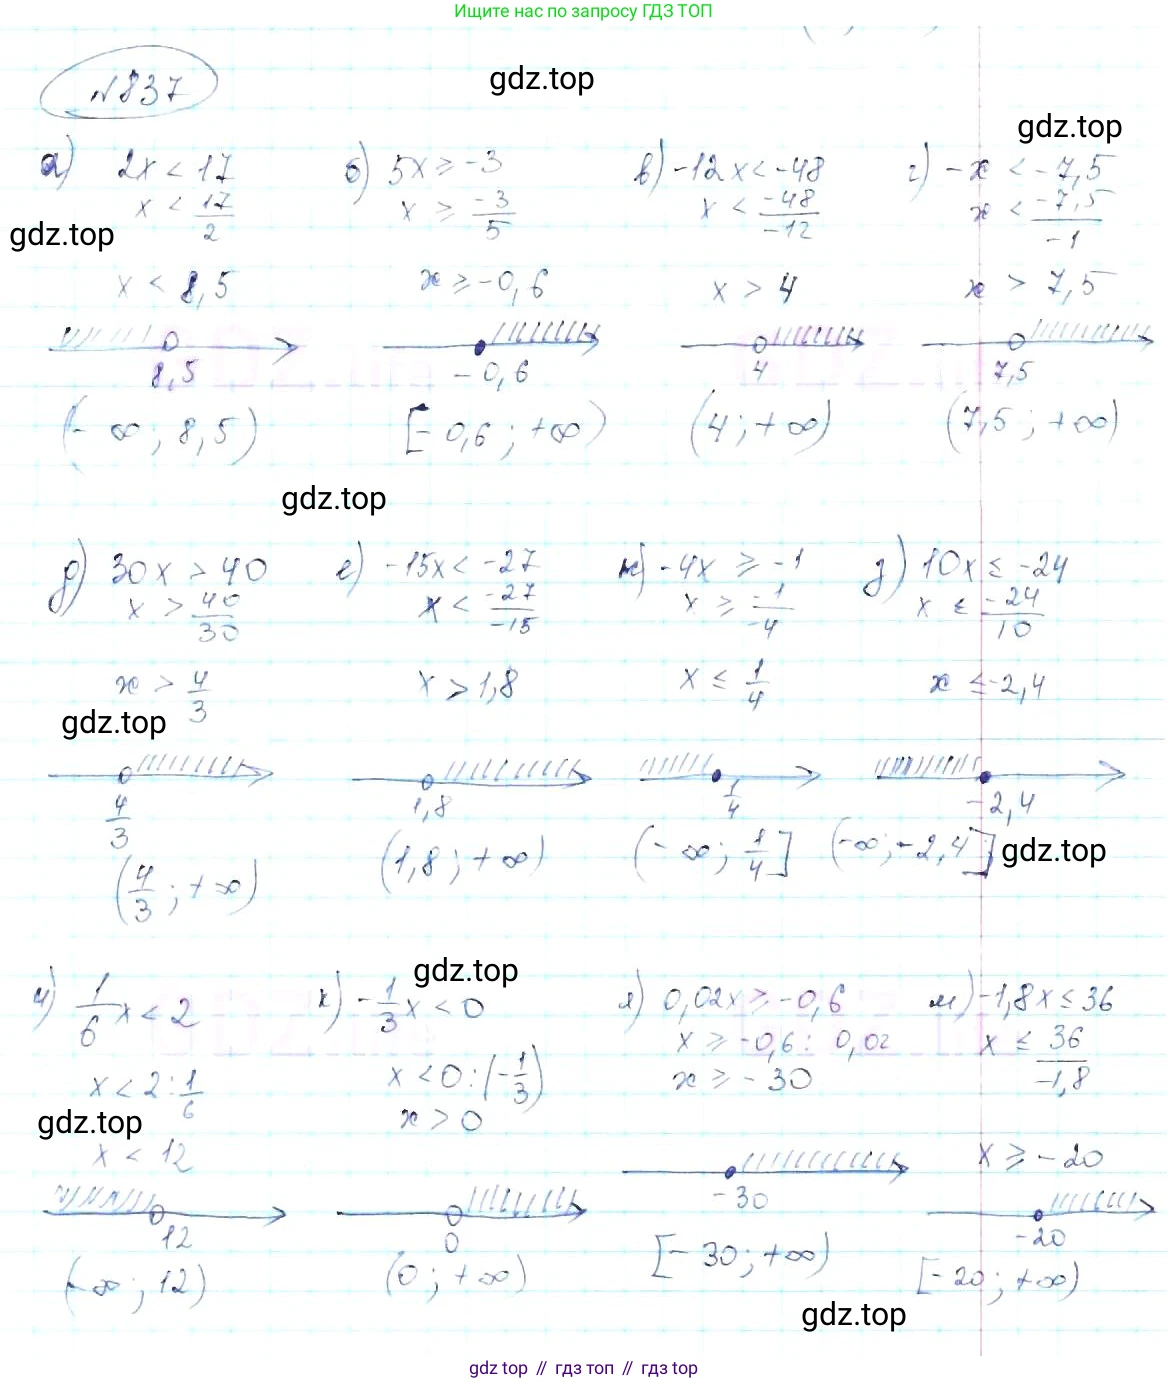 Ищите нас по запросу ГДЗ ТОП
№837
gdz.top
gdz.top
а) 2x < 17
x < 17/2
x < 8,5
8,5
(-∞; 8,5)
gdz.top
б) 5x ≥ -3
x ≥ -3/5
x ≥ -0,6
-0,6
[-0,6; +∞)
в) -12x < -48
x < -48/-12
x > 4
4
(4; +∞)
г) -x < -7,5
x < -7,5/-1
x > 7,5
7,5
(7,5; +∞)
gdz.top
д) 30x > 40
x > 40/30
x > 4/3
gdz.top
4/3
(4/3; +∞)
е) -15x < -27
x < -27/-15
x > 1,8
1,8
(1,8; +∞)
ж) -4x ≥ -1
x ≥ -1/-4
x ≤ 1/4
1/4
(-∞; 1/4]
з) 10x ≤ -24
x ≤ -24/10
x ≤ -2,4
-2,4
(-∞; -2,4]
gdz.top
gdz.top
и) 1/6 x < 2
x < 2 : 1/6
gdz.top
x < 12
12
(-∞; 12)
к) -1/3 x < 0
x < 0 : (-1/3)
x > 0
0
(0; +∞)
л) 0,02x ≥ -0,6
x ≥ -0,6 : 0,02
x ≥ -30
-30
[-30; +∞)
м) -1,8x ≤ 36
x ≤ 36/-1,8
x ≥ -20
-20
[-20; +∞)
gdz.top
gdz top // гдз топ // гдз top